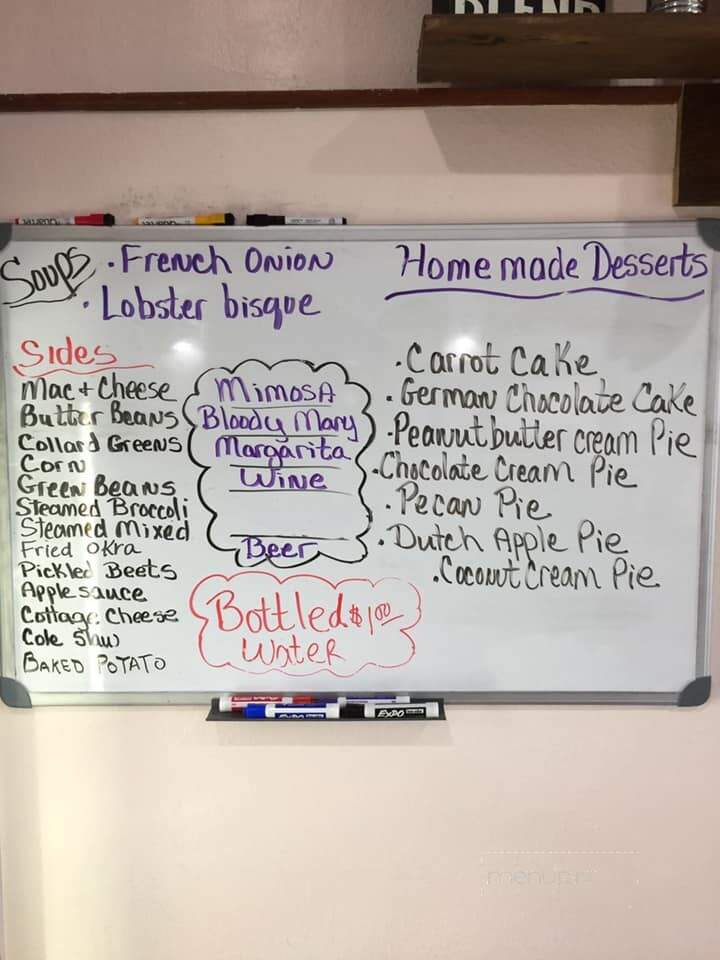 BLEND
Soups
· French Onion
· Lobster bisque
Home made Desserts
Sides
Mac + Cheese
Butter Beans
Collard Greens
Corn
Green Beans
Steamed Broccoli
Steamed Mixed
Fried Okra
Pickled Beets
Apple sauce
Cottage Cheese
Cole Slaw
BAKED POTATO
Mimosa
Bloody Mary
Margarita
Wine
Beer
Bottled $1.00
Water
· Carrot Cake
· German Chocolate Cake
· Peanutbutter cream Pie
· Chocolate Cream Pie
· Pecan Pie
· Dutch Apple Pie
· Coconut Cream Pie
EXPO EXPO